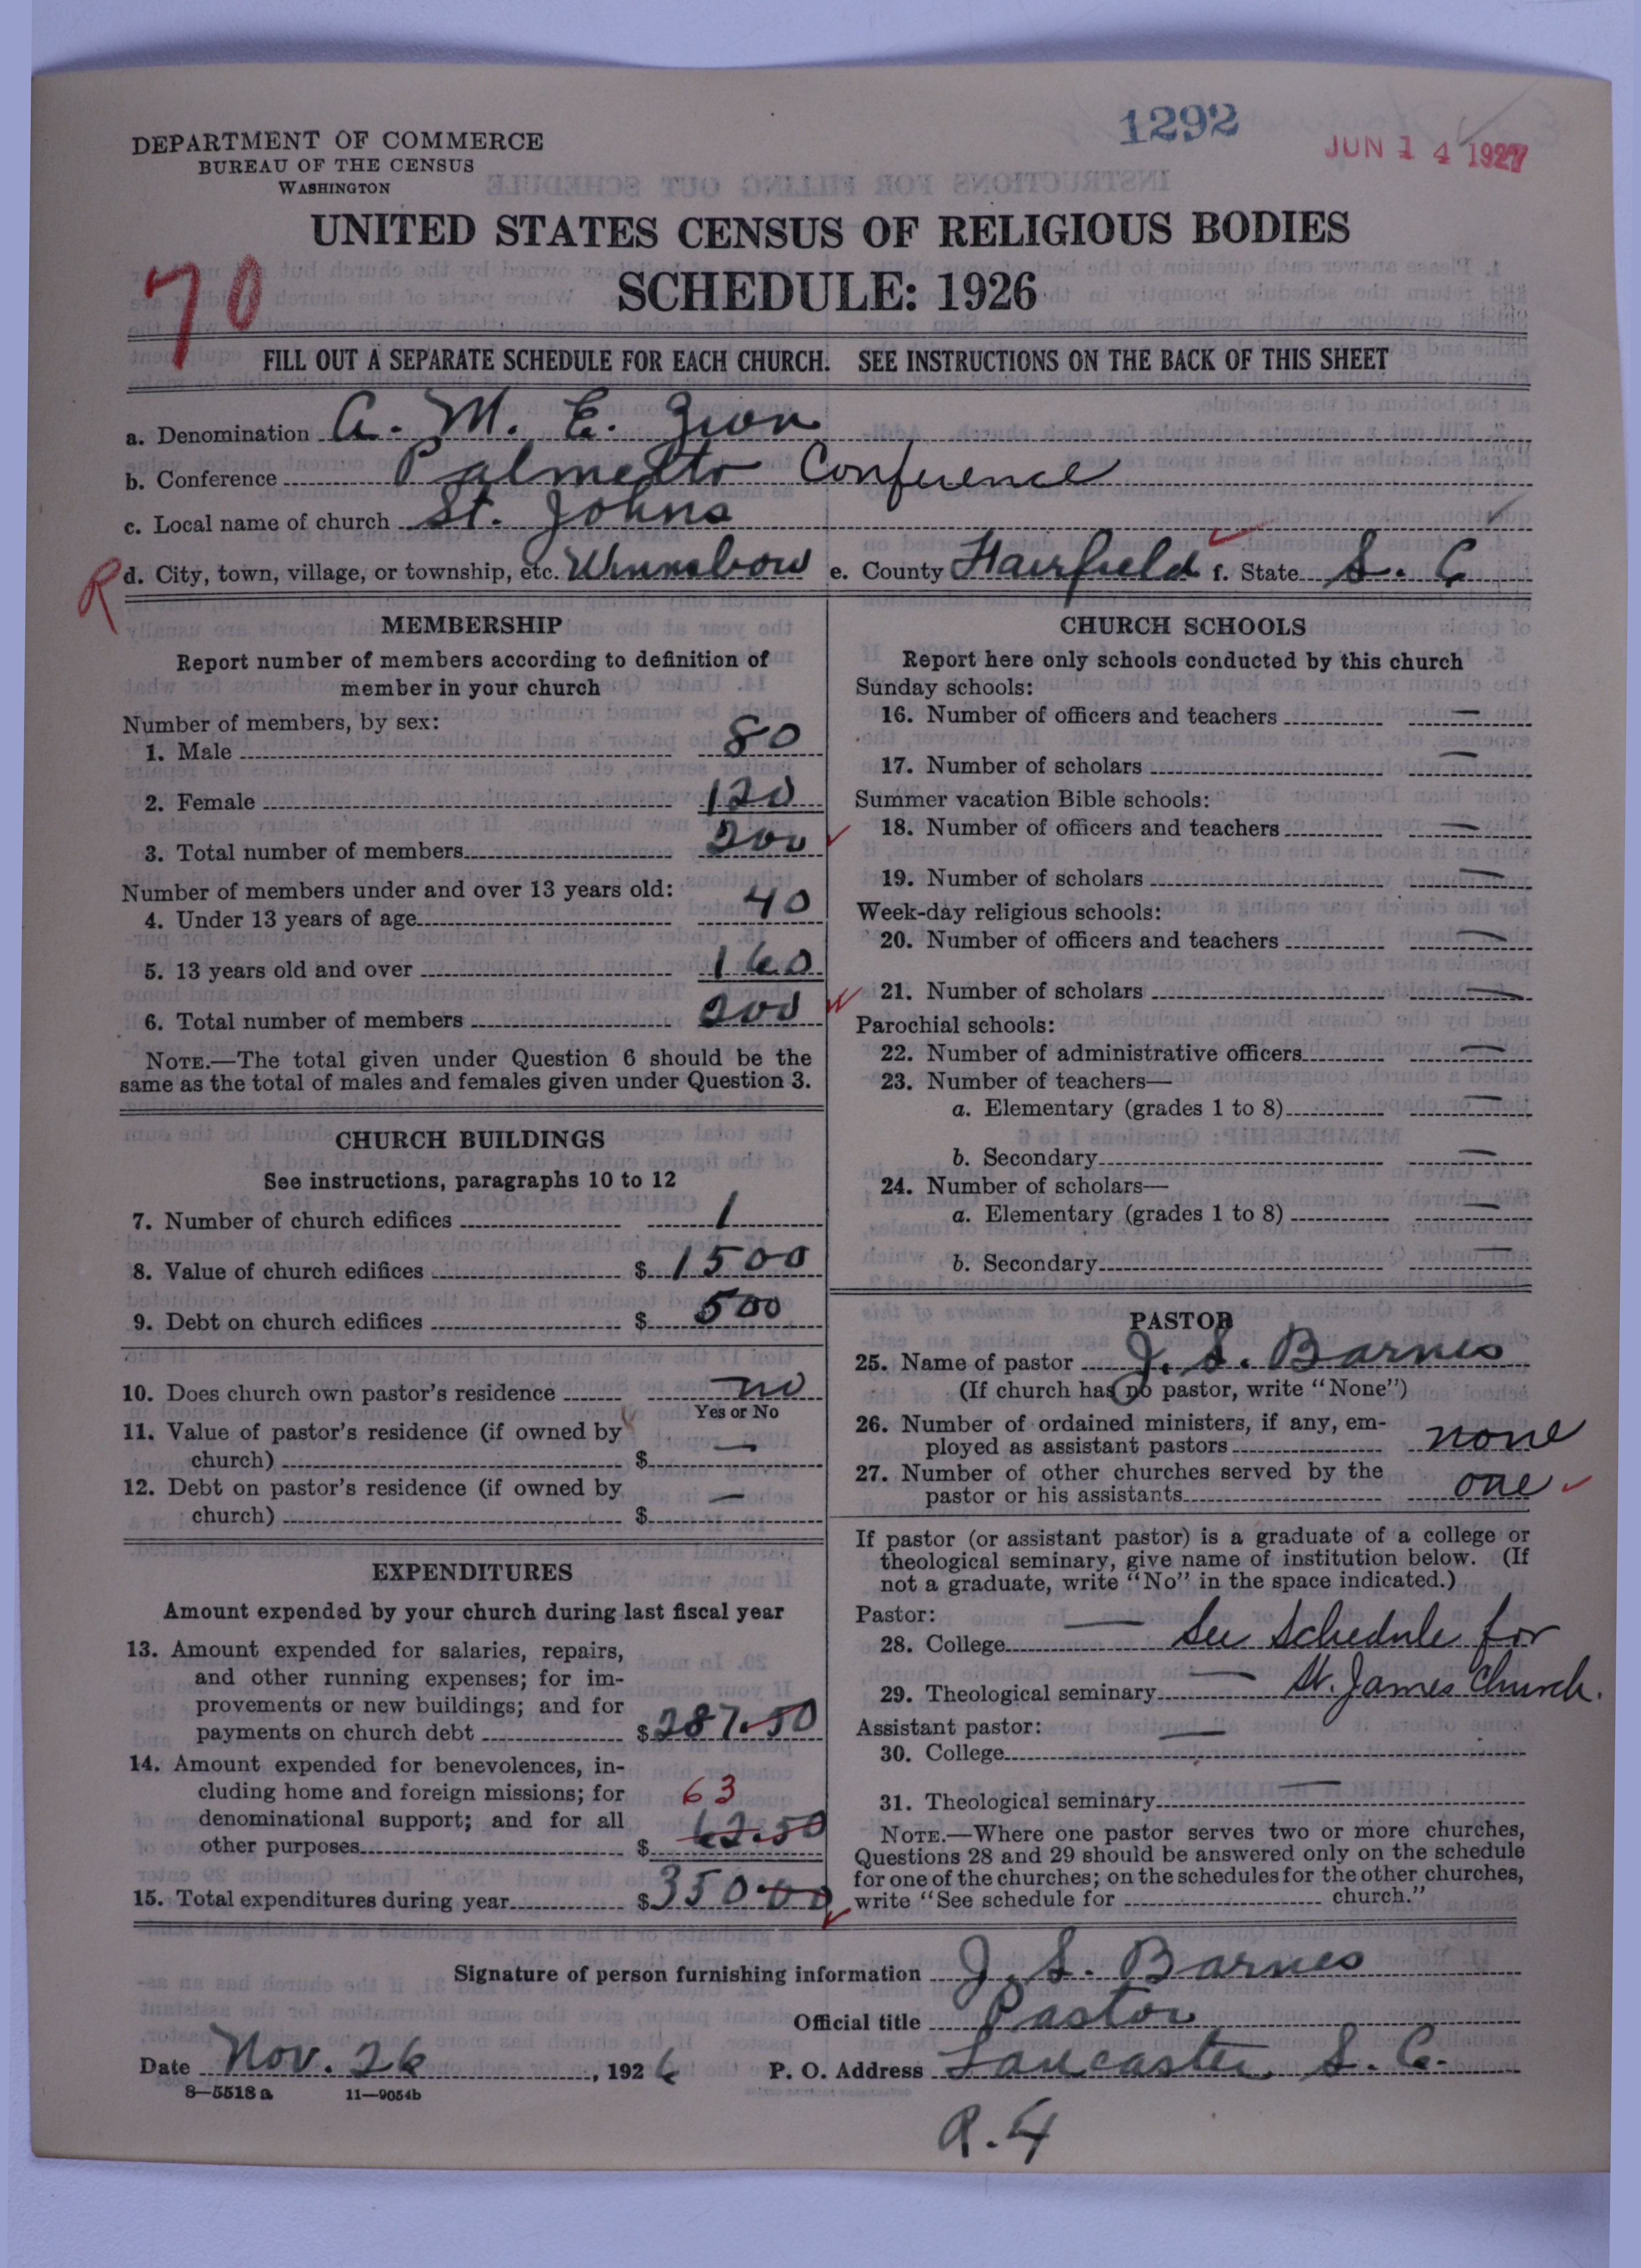 1292
JUN 14 1927
DEPARTMENT OF COMMERCE
BUREAU OF THE CENSUS
WASHINGTON
UNITED STATES CENSUS OF RELIGIOUS BODIES
SCHEDULE: 1926
70
FILL OUT A SEPARATE SCHEDULE FOR EACH CHURCH. SEE INSTRUCTIONS ON THE BACK OF THIS SHEET
a. Denomination A. M. E. Zion
b. Conference Palmetto Conference
c. Local name of church St. Johns
R d. City, town, village, or township, etc. Winnsboro e. County Fairfield f. State S. C
MEMBERSHIP
Report number of members according to definition of
member in your church
Number of members, by sex:
1. Male 80
2. Female 120
3. Total number of members 200
Number of members under and over 13 years old:
4. Under 13 years of age 40
5. 13 years old and over 160
6. Total number of members 200
NOTE.—The total given under Question 6 should be the
same as the total of males and females given under Question 3.
CHURCH BUILDINGS
See instructions, paragraphs 10 to 12
7. Number of church edifices 1
8. Value of church edifices $ 1500
9. Debt on church edifices $ 500
10. Does church own pastor's residence no
Yes or No
11. Value of pastor's residence (if owned by
church) $ —
12. Debt on pastor's residence (if owned by
church) $ —
EXPENDITURES
Amount expended by your church during last fiscal year
13. Amount expended for salaries, repairs,
and other running expenses; for im-
provements or new buildings; and for
payments on church debt $ 287.50
14. Amount expended for benevolences, in-
cluding home and foreign missions; for 63
denominational support; and for all
other purposes $ 62.50
15. Total expenditures during year $ 350.00
CHURCH SCHOOLS
Report here only schools conducted by this church
Sunday schools:
16. Number of officers and teachers —
17. Number of scholars —
Summer vacation Bible schools:
18. Number of officers and teachers —
19. Number of scholars —
Week-day religious schools:
20. Number of officers and teachers —
21. Number of scholars —
Parochial schools:
22. Number of administrative officers —
23. Number of teachers—
a. Elementary (grades 1 to 8) —
b. Secondary —
24. Number of scholars—
a. Elementary (grades 1 to 8) —
b. Secondary —
PASTOR
25. Name of pastor J. S. Barnes
(If church has no pastor, write "None")
26. Number of ordained ministers, if any, em-
ployed as assistant pastors none
27. Number of other churches served by the
pastor or his assistants one
If pastor (or assistant pastor) is a graduate of a college or
theological seminary, give name of institution below. (If
not a graduate, write "No" in the space indicated.)
Pastor:
28. College — See Schedule for
29. Theological seminary — St. James Church.
Assistant pastor: —
30. College
31. Theological seminary —
NOTE.—Where one pastor serves two or more churches,
Questions 28 and 29 should be answered only on the schedule
for one of the churches; on the schedules for the other churches,
write "See schedule for church."
Signature of person furnishing information J. S. Barnes
Official title Pastor
Date Nov. 26, 1926 P. O. Address Lancaster, S. C.
8—5518 a 11—9054b
R. 4